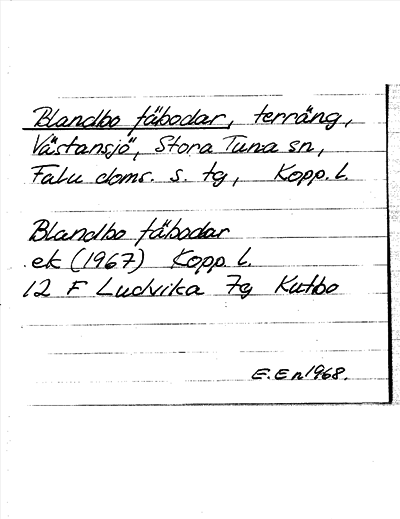 Blandbo fäbodar, terräng,
Västansjö, Stora Tuna sn,
Falu doms. s. tg, Kopp. l.
Blandbo fäbodar
ek (1967) Kopp. l.
12 F Ludvika 7g Kutbo
E. En 1968.